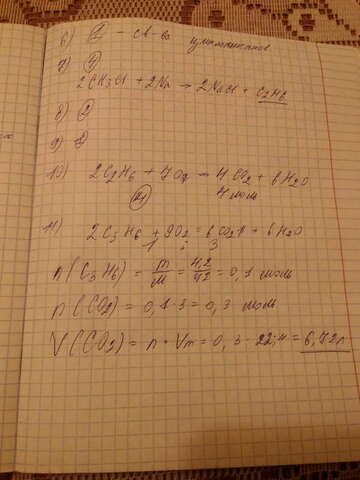 6) 2 - св-ва циклоалканов
7) 4
2CH3Cl + 2Na → 2NaCl + C2H6
8) 2
9) 2
10) 2C2H6 + 7O2 → 4CO2 + 6H2O
4 моль
11) 2C3H6 + 9O2 = 6CO2↑ + 6H2O
1 : 3
n(C3H6) = m/M = 4,2/42 = 0,1 моль
n(CO2) = 0,1·3 = 0,3 моль
V(CO2) = n · Vm = 0,3 · 22,4 = 6,72л